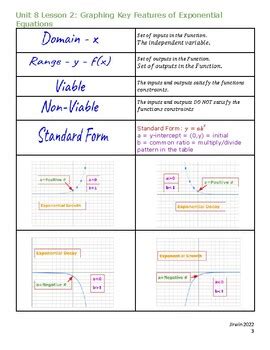 Unit 8 Lesson 2: Graphing Key Features of Exponential
Equations
Domain - x
Set of inputs in the Function.
The independent variable.
Range - y - f(x)
Set of outputs in the Function.
Set of outputs in the Function.
Viable
The inputs and outputs satisfy the functions
constraints.
Non-Viable
The inputs and outputs DO NOT satisfy the
functions constraints.
Standard Form
Standard Form: y = abˣ
a = y-intercept = (0,y) = initial
b = common ratio = multiply/divide
pattern in the table
a=Positive #
a>0
b>1
Exponential Growth
a>0
b<1
a=Positive #
Exponential Decay
Exponential Decay
a<0
b<1
a=Negative #
Exponential Growth
a<0
b>1
a=Negative #
Irwin2022
3